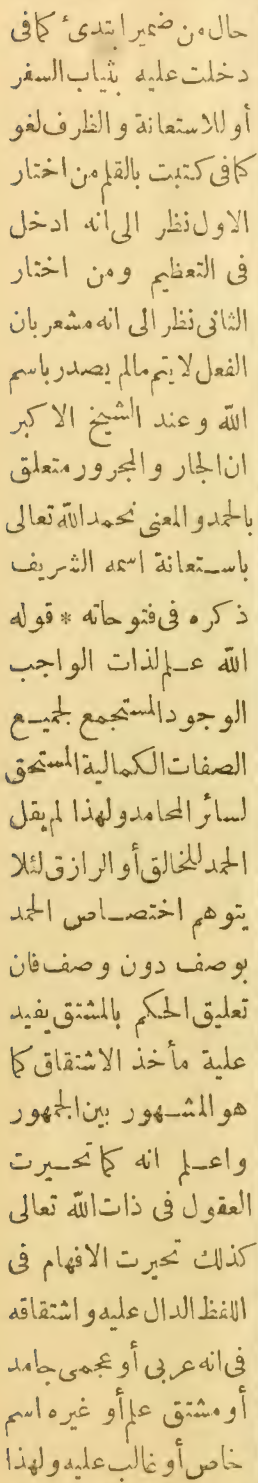 حال من ضمير ابتدئ كما فى
دخلت عليه بثياب السفر
أو للاستعانة و الظرف لغو
كما فى كتبت بالقلم من اختار
الاول نظر الى انه ادخل
فى التعظيم و من اختار
الثانى نظر الى انه مشعر بان
الفعل لا يتم مالم يصدر باسم
الله و عند الشيخ الاكبر
ان الجار و المجرور متعلق
بالحمد و المعنى نحمد الله تعالى
باستعانة اسمه الشريف
ذكره فى فتوحاته * قوله
الله علم لذات الواجب
الوجود المستجمع لجميع
الصفات الكمالية المستحق
لسائر المحامد ولهذا لم يقل
الحمد للخالق أو الرازق لئلا
يتوهم اختصاص الحمد
بوصف دون وصف فان
تعليق الحكم بالمشتق يفيد
علية مأخذ الاشتقاق كما
هو المشهور بين الجمهور
واعلم انه كما تحيرت
العقول فى ذات الله تعالى
كذلك تحيرت الافهام فى
اللفظ الدال عليه و اشتقاقه
فى انه عربى أو عجمى جامد
أو مشتق علم أو غيره اسم
خاص أو غالب عليه و لهذا